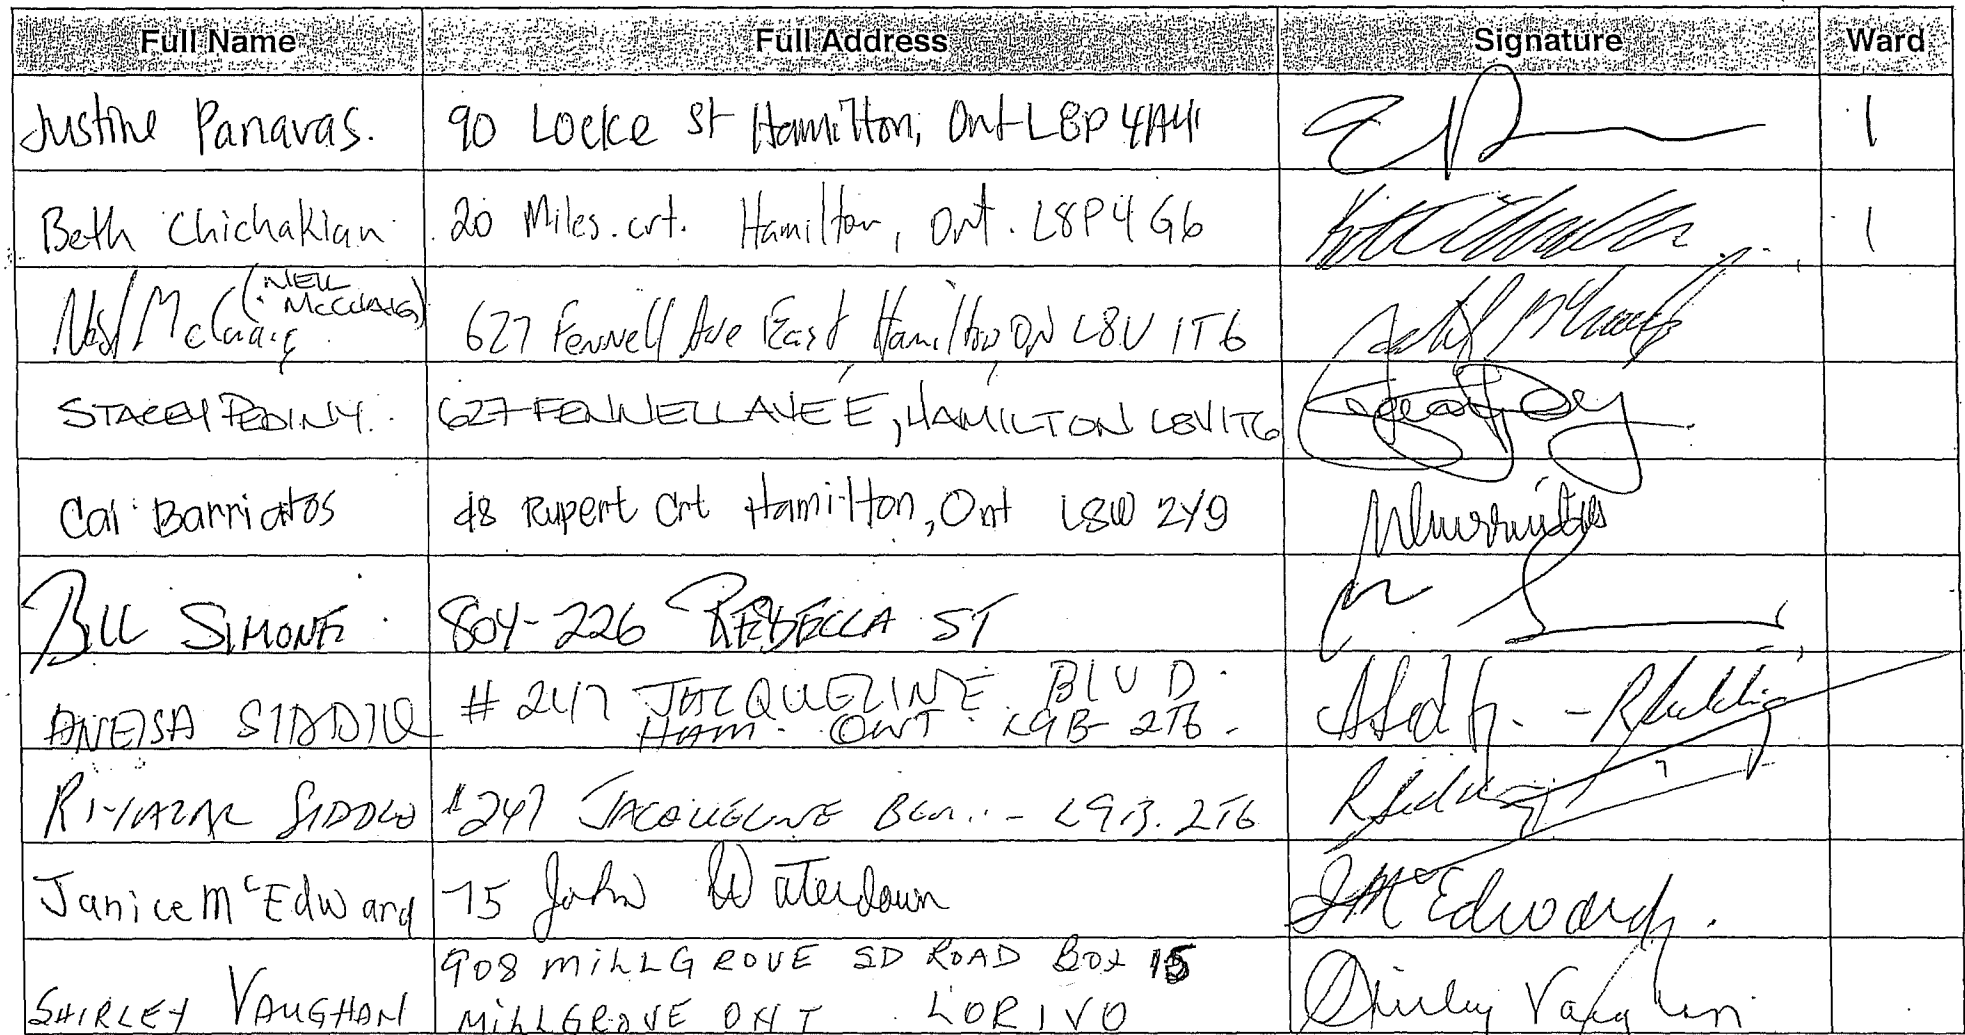 Full Name Full Address Signature Ward
Justine Panavas. 90 Locke St Hamilton, Ont L8P 4A4 1
Beth Chichakian 20 Miles. crt. Hamilton, Ont. L8P4G6 1
(NEIL
McCUAIG)
Neil McCuaig 627 Fennell Ave East Hamilton ON L8V 1T6
STACEY PEDINY. 627 FENNELL AVE E, HAMILTON L8V1T6
Cal Barrientos 48 Rupert Crt Hamilton, Ont L8W 2Y9
BILL SIMONE 804-226 REBECCA ST
ANEISA SIDDIQ # 247 JACQUELINE BLVD.
HAM. ONT L9B 2T6.
SIDDIQ #247 JACQUELINE - L9B. 2T6
Janice McEdward 75 John Waterdown J McEdward.
908 MILLGROVE SD ROAD BOX 15
SHIRLEY VAUGHAN MILLGROVE ONT L0R1V0 Shirley Vaughan